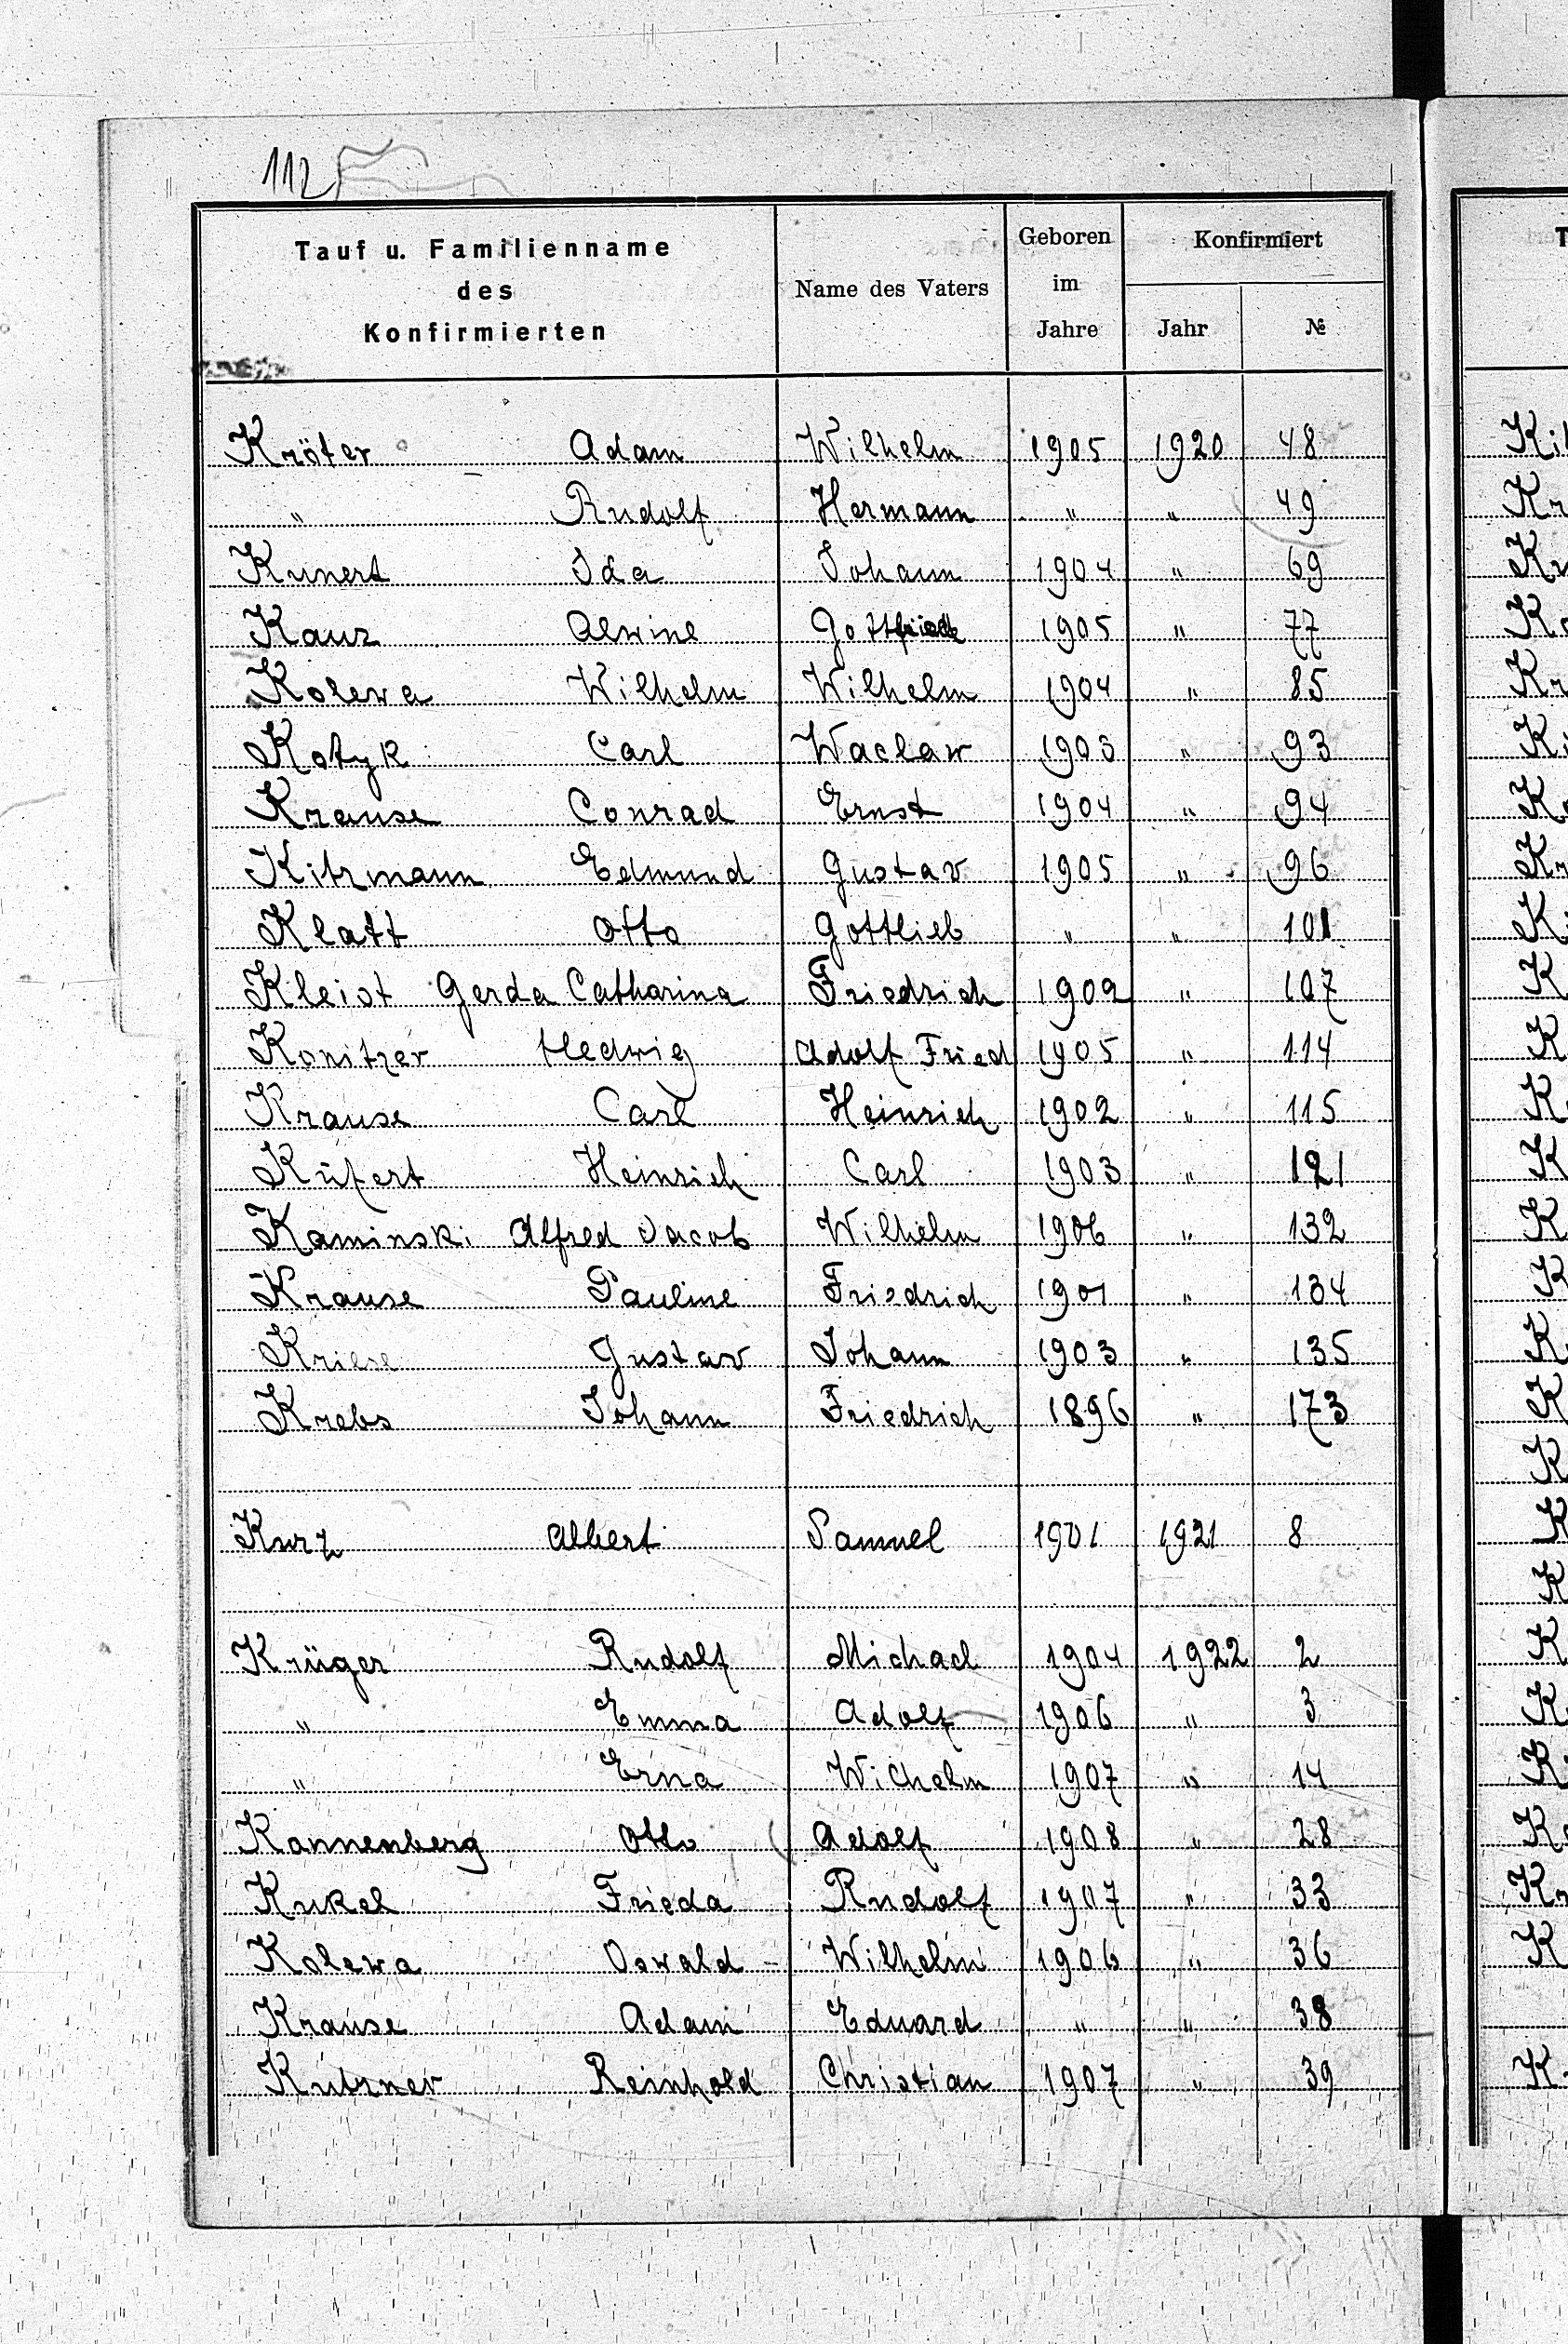 112
Tauf u. Familienname des Konfirmierten | Name des Vaters | Geboren im Jahre | Konfirmiert Jahr | №
Kröter Adam Wilhelm 1905 1920 48
" Rudolf Hermann " " 49
Kunert Ida Johann 1904 " 69
Kauz Alwine Gottfried 1905 " 77
Kolewa Wilhelm Wilhelm 1904 " 85
Kotyk Carl Waclaw 1903 " 93
Krause Conrad Ernst 1904 " 94
Kitzmann Edmund Gustav 1905 " 96
Klatt Otto Gottlieb " " 101
Kleist Gerda Catharina Friedrich 1902 " 107
Konitzer Hedwig Adolf Fried 1905 " 114
Krause Carl Heinrich 1902 " 115
Küfert Heinrich Carl 1903 " 121
Kaminski Alfred Jacob Wilhelm 1906 " 132
Krause Pauline Friedrich 1901 " 134
Kriese Gustav Johann 1903 " 135
Krebs Johann Friedrich 1896 " 173
Kurz Albert Samuel 1901 1921 8
Krüger Rudolf Michael 1904 1922 2
" Emma Adolf 1906 " 3
" Erna Wilhelm 1907 " 14
Kannenberg Otto Adolf 1908 " 28
Kukel Frieda Rudolf 1907 " 33
Kolewa Oswald Wilhelm 1906 " 36
Krause Adam Eduard " " 38
Kutzner Reinhold Christian 1907 " 39